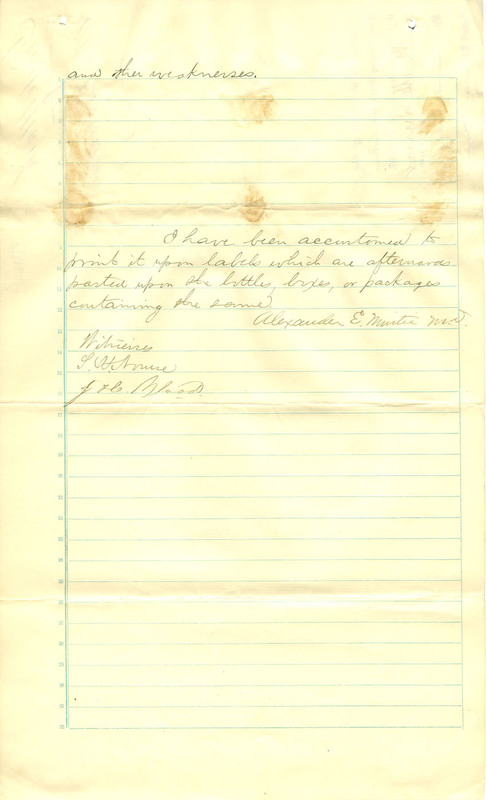 and other weaknesses.
I have been accustomed to
print it upon labels which are afterwards
pasted upon the bottles, boxes, or packages
containing the same
Alexander E. M.D.
Witnesses
S. H.
J. Blood.